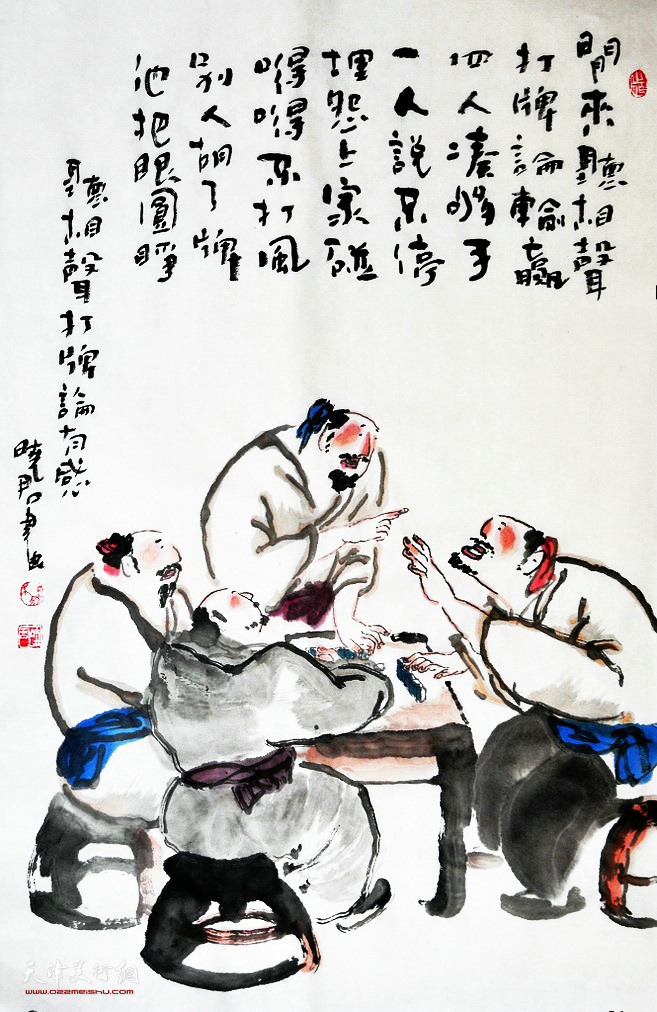 閒來聽相聲
打牌論輸贏
四人湊夠手
一人説不停
埋怨上家碰
嘚嘚不打風
别人胡了牌
他把眼圓睜
聽相聲打牌論有感
天津美術網
www.022meishu.com